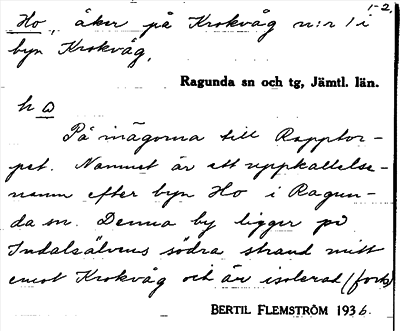 1-2,
Ho, åker på Krokvåg n:r 1 i
byn Krokvåg.
Ragunda sn och tg, Jämtl. län.
h ω
På inägorna till Rapptor-
pet. Namnet är ett uppkallelse-
namn efter byn Ho i Ragun-
da sn. Denna by ligger på
Indalsälvens södra strand mitt
emot Krokvåg och är isolerad (forts)
BERTIL FLEMSTRÖM 1936.